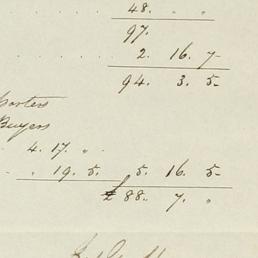 48. " "
97.
2. 16. 7
94. 3. 5
Buyers
4. 17. "
" 19. 5. 5. 16. 5
£ 88. 7. "